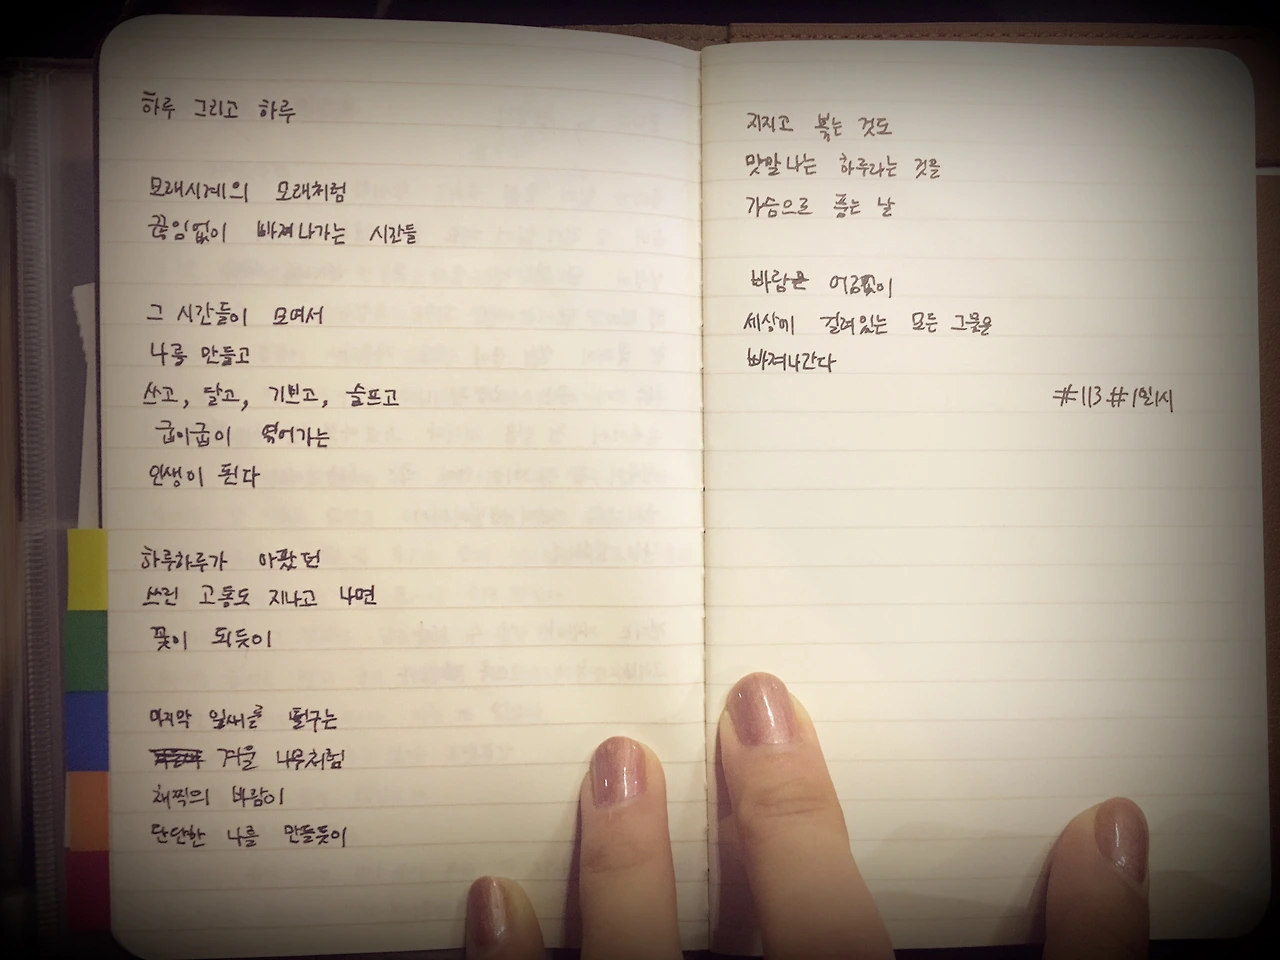 하루 그리고 하루
모래시계의 모래처럼
끊임없이 빠져나가는 시간들
그 시간들이 모여서
나를 만들고
쓰고, 달고, 기쁘고, 슬프고
굽이굽이 엮어가는
인생이 된다
하루하루가 아팠던
쓰린 고통도 지나고 나면
꽃이 되듯이
마지막 잎새를 떨구는
겨울 나무처럼
채찍의 바람이
단단한 나를 만들듯이
지지고 볶는 것도
맛깔나는 하루라는 것을
가슴으로 품는 날
바람은
세상에 걸려있는 모든 그물을
빠져나간다
#113 #1일1시